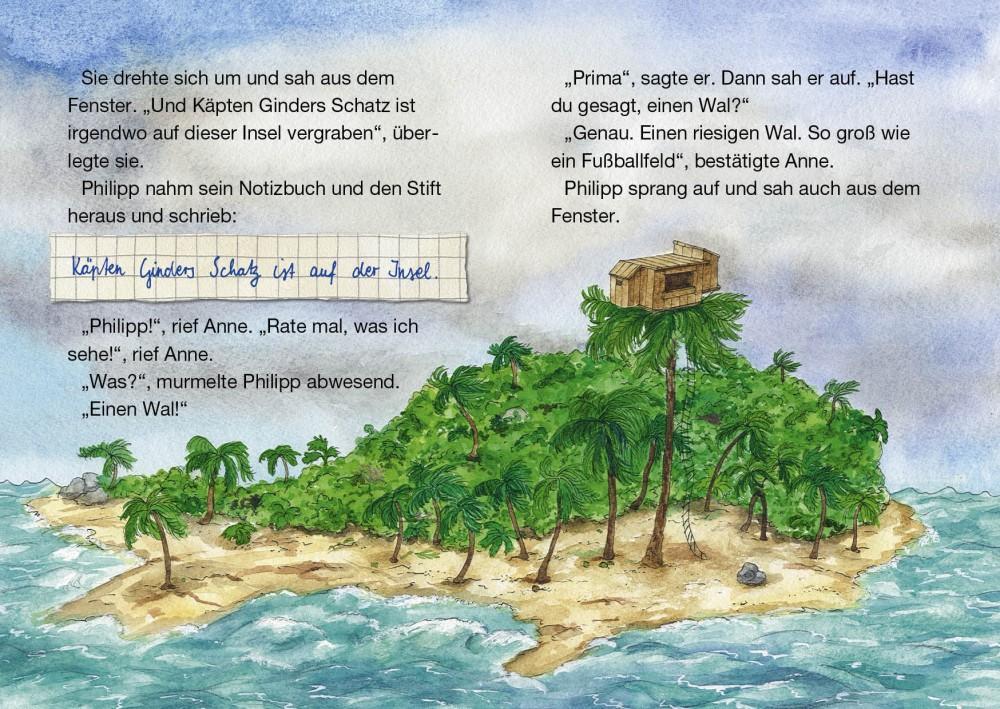 Sie drehte sich um und sah aus dem
Fenster. „Und Käpten Ginders Schatz ist
irgendwo auf dieser Insel vergraben“, über-
legte sie.
Philipp nahm sein Notizbuch und den Stift
heraus und schrieb:
Käpten Ginders Schatz ist auf der Insel.
„Philipp!“, rief Anne. „Rate mal, was ich
sehe!“, rief Anne.
„Was?“, murmelte Philipp abwesend.
„Einen Wal!“
„Prima“, sagte er. Dann sah er auf. „Hast
du gesagt, einen Wal?“
„Genau. Einen riesigen Wal. So groß wie
ein Fußballfeld“, bestätigte Anne.
Philipp sprang auf und sah auch aus dem
Fenster.